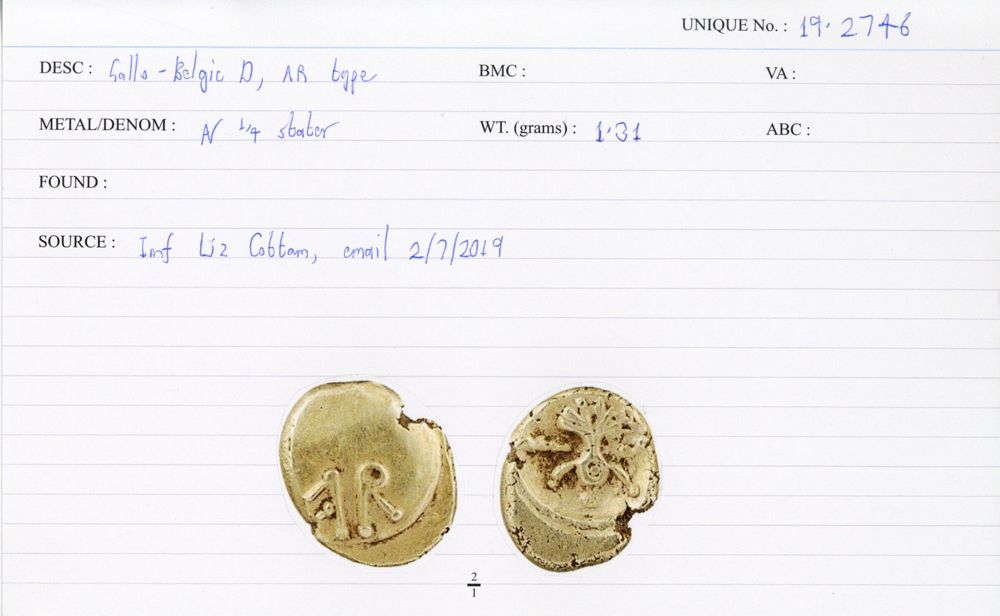 UNIQUE No. : 19.2746
DESC : Gallo-Belgic D, AR type BMC : VA :
METAL/DENOM : AV 1/4 stater WT. (grams) : 1.31 ABC :
FOUND :
SOURCE : Inf Liz Cottam, email 2/7/2019
AR
2
1